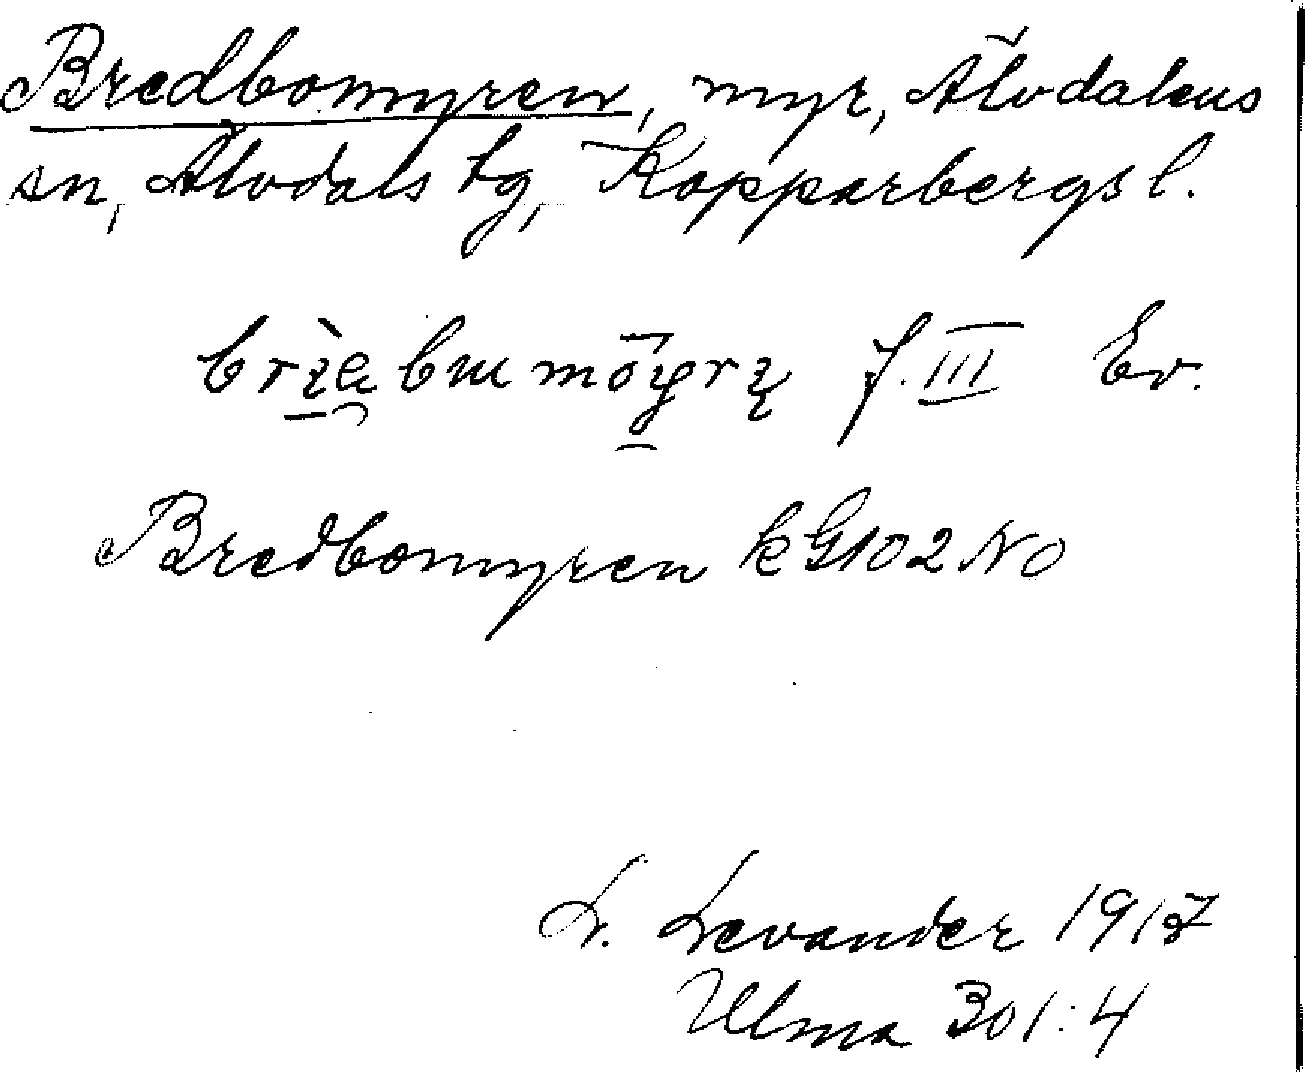 Bredbomyren, myr, Älvdalens
sn, Älvdals tg, Kopparbergs l.
f. III Ev.
Bredbomyren k G102 NO
L. Levander 1917
Ulma 301:4